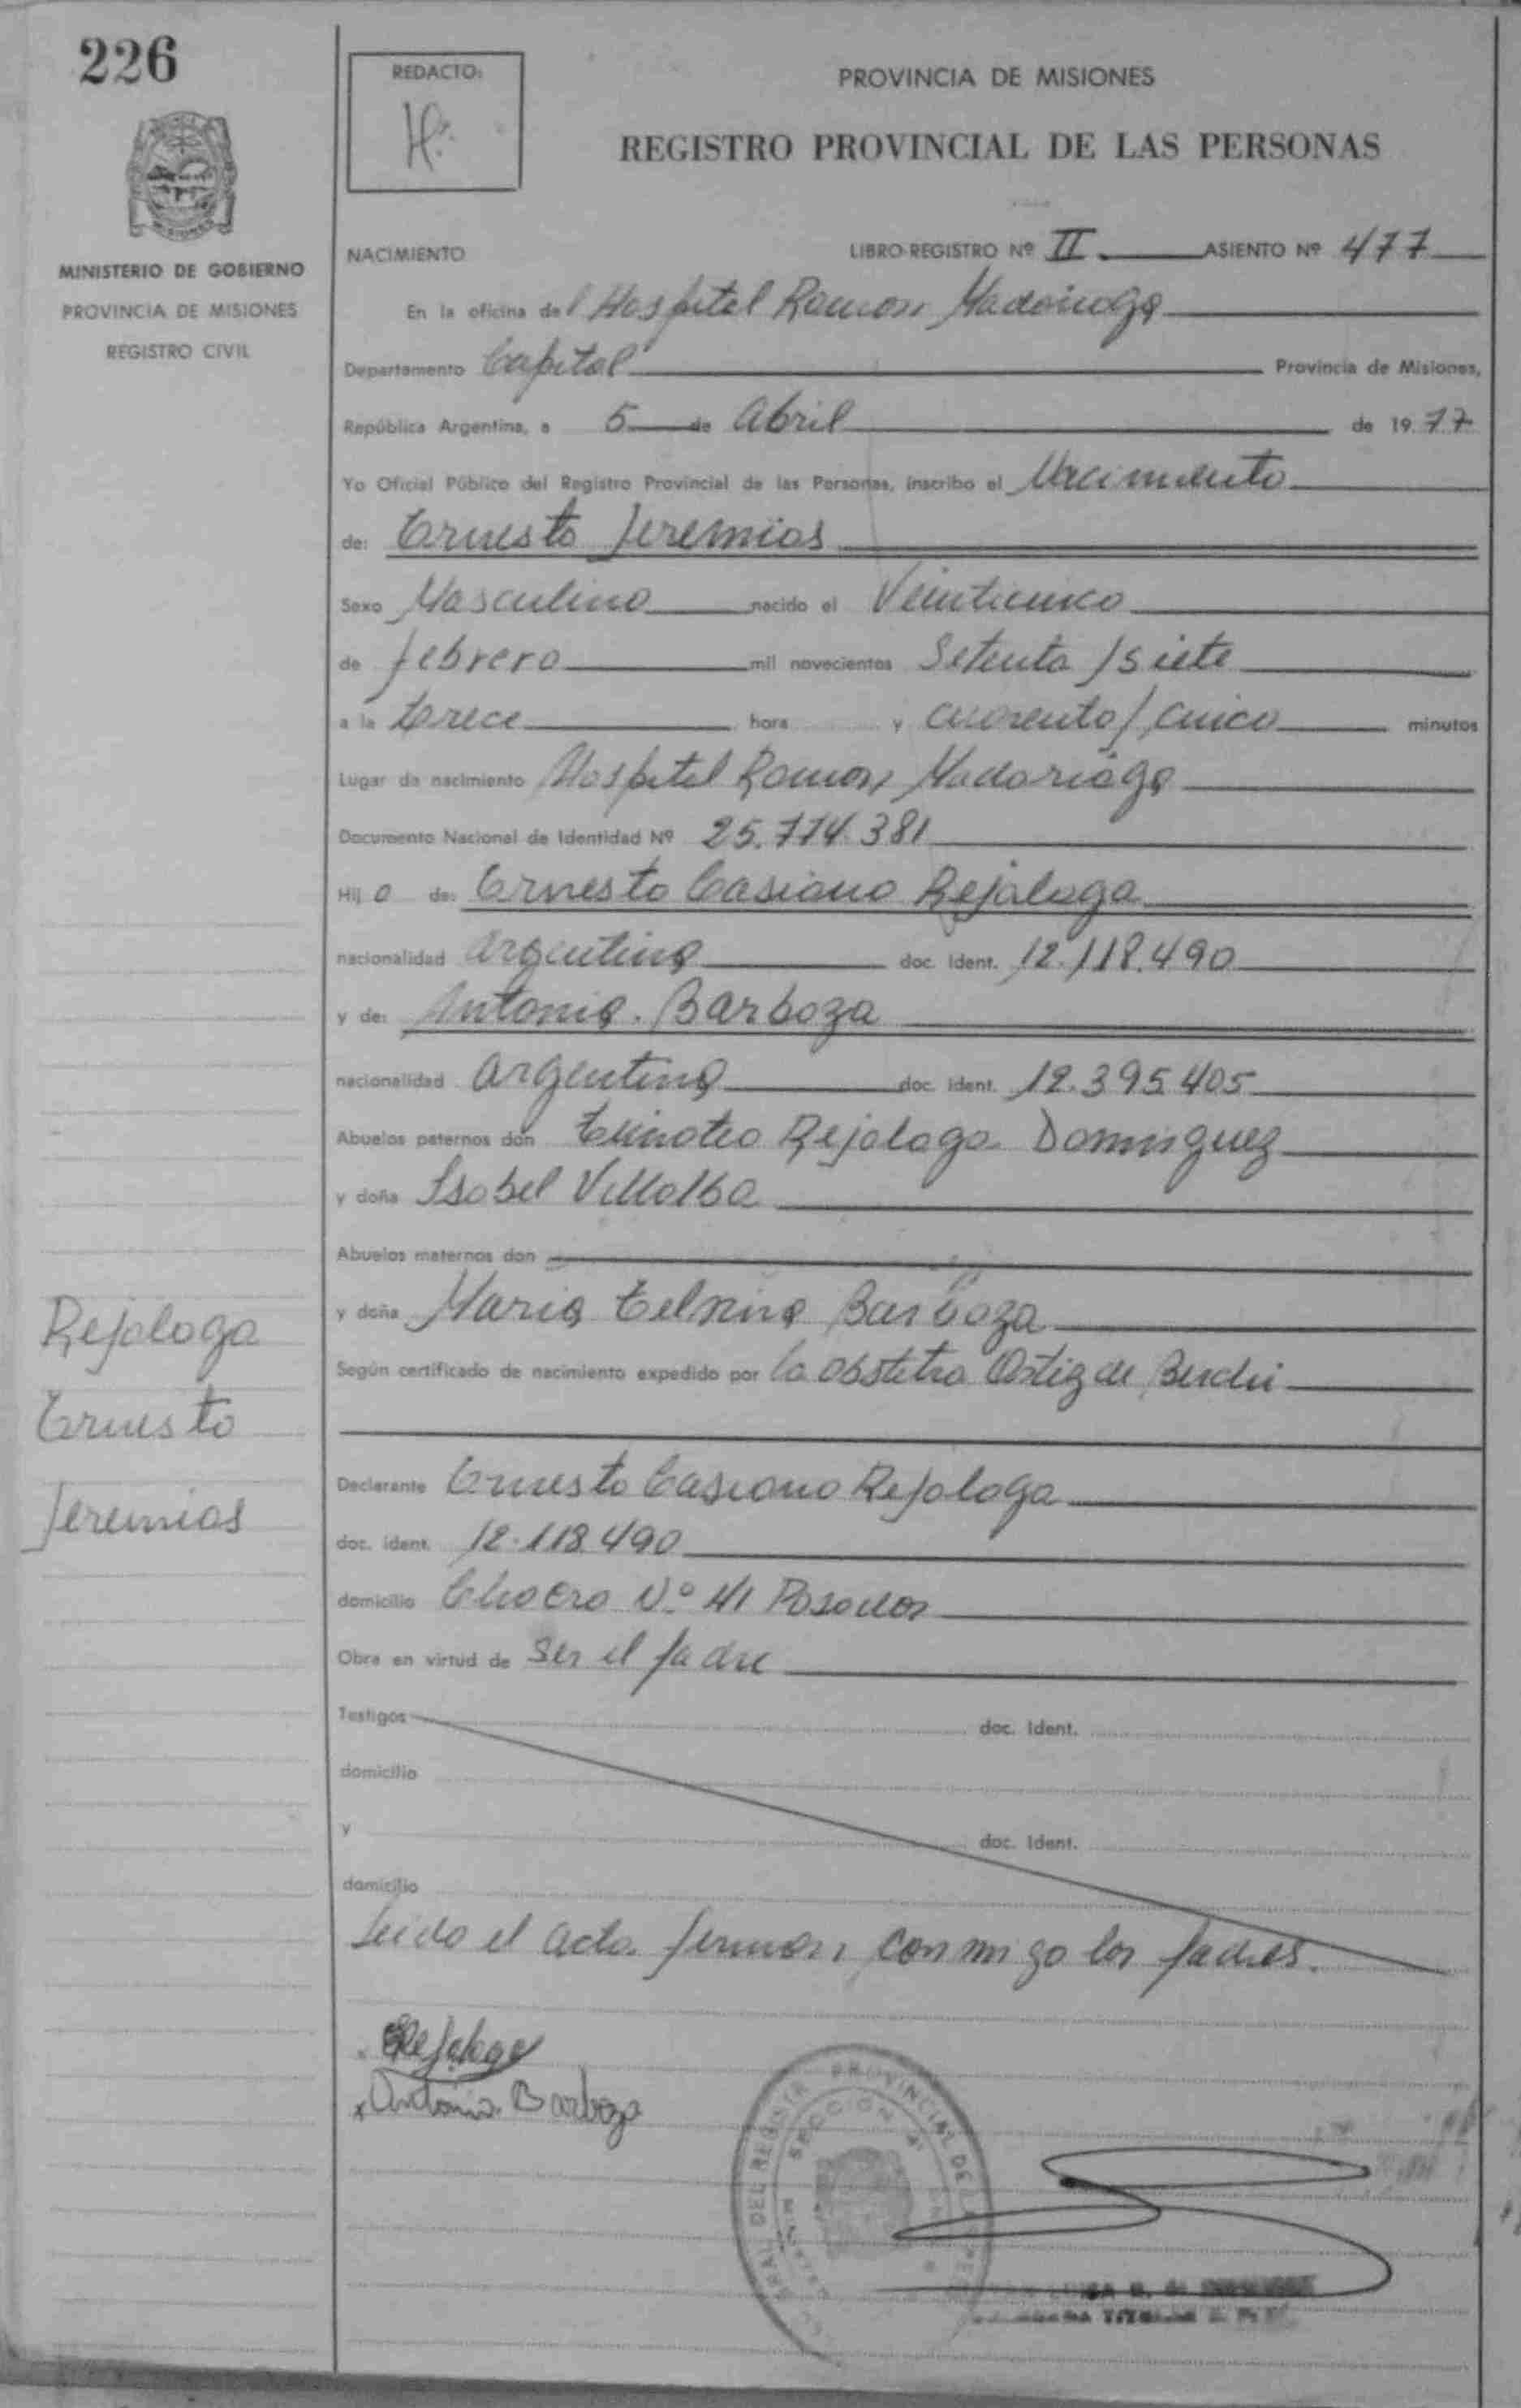 226
REDACTO:
PROVINCIA DE MISIONES
REGISTRO PROVINCIAL DE LAS PERSONAS
MINISTERIO DE GOBIERNO
PROVINCIA DE MISIONES
REGISTRO CIVIL
NACIMIENTO LIBRO-REGISTRO Nº II ASIENTO Nº 477
En la oficina del Hospital Ramon Madariaga
Departamento Capital Provincia de Misiones,
República Argentina, a 5 de Abril de 1977
Yo Oficial Público del Registro Provincial de las Personas, inscribo el Nacimiento
de: Ernesto Jeremias
Sexo Masculino nacido el Veinticinco
de febrero mil novecientos Setenta / siete
a la trece hora y cuarenta / cinco minutos
Lugar de nacimiento Hospital Ramon Madariaga
Documento Nacional de Identidad Nº 25.774.381
Hij o de: Ernesto Casiano Rejalaga
nacionalidad argentina doc. Ident. 12.118.490
y de: Antonia. Barboza
nacionalidad argentina doc. ident. 12.395.405
Abuelos paternos don Timoteo Rejalaga Dominguez
y doña Isabel Villalba
Abuelos maternos don
y doña Maria Telmina Barboza
Según certificado de nacimiento expedido por la Obstetra Ortiz de
Rejalaga
Ernesto
Jeremias
Declarante Ernesto Casiano Rejalaga
doc. ident. 12.118.490
domicilio Chacra N.º 41 Posadas
Obra en virtud de Ser el padre
Testigos doc. Ident.
domicilio
y doc. Ident.
domicilio
Leido el acta firman conmigo los padres.
Rejalaga
x Antonia. Barboza
PROVINCIAL DE
SECCION 4ª